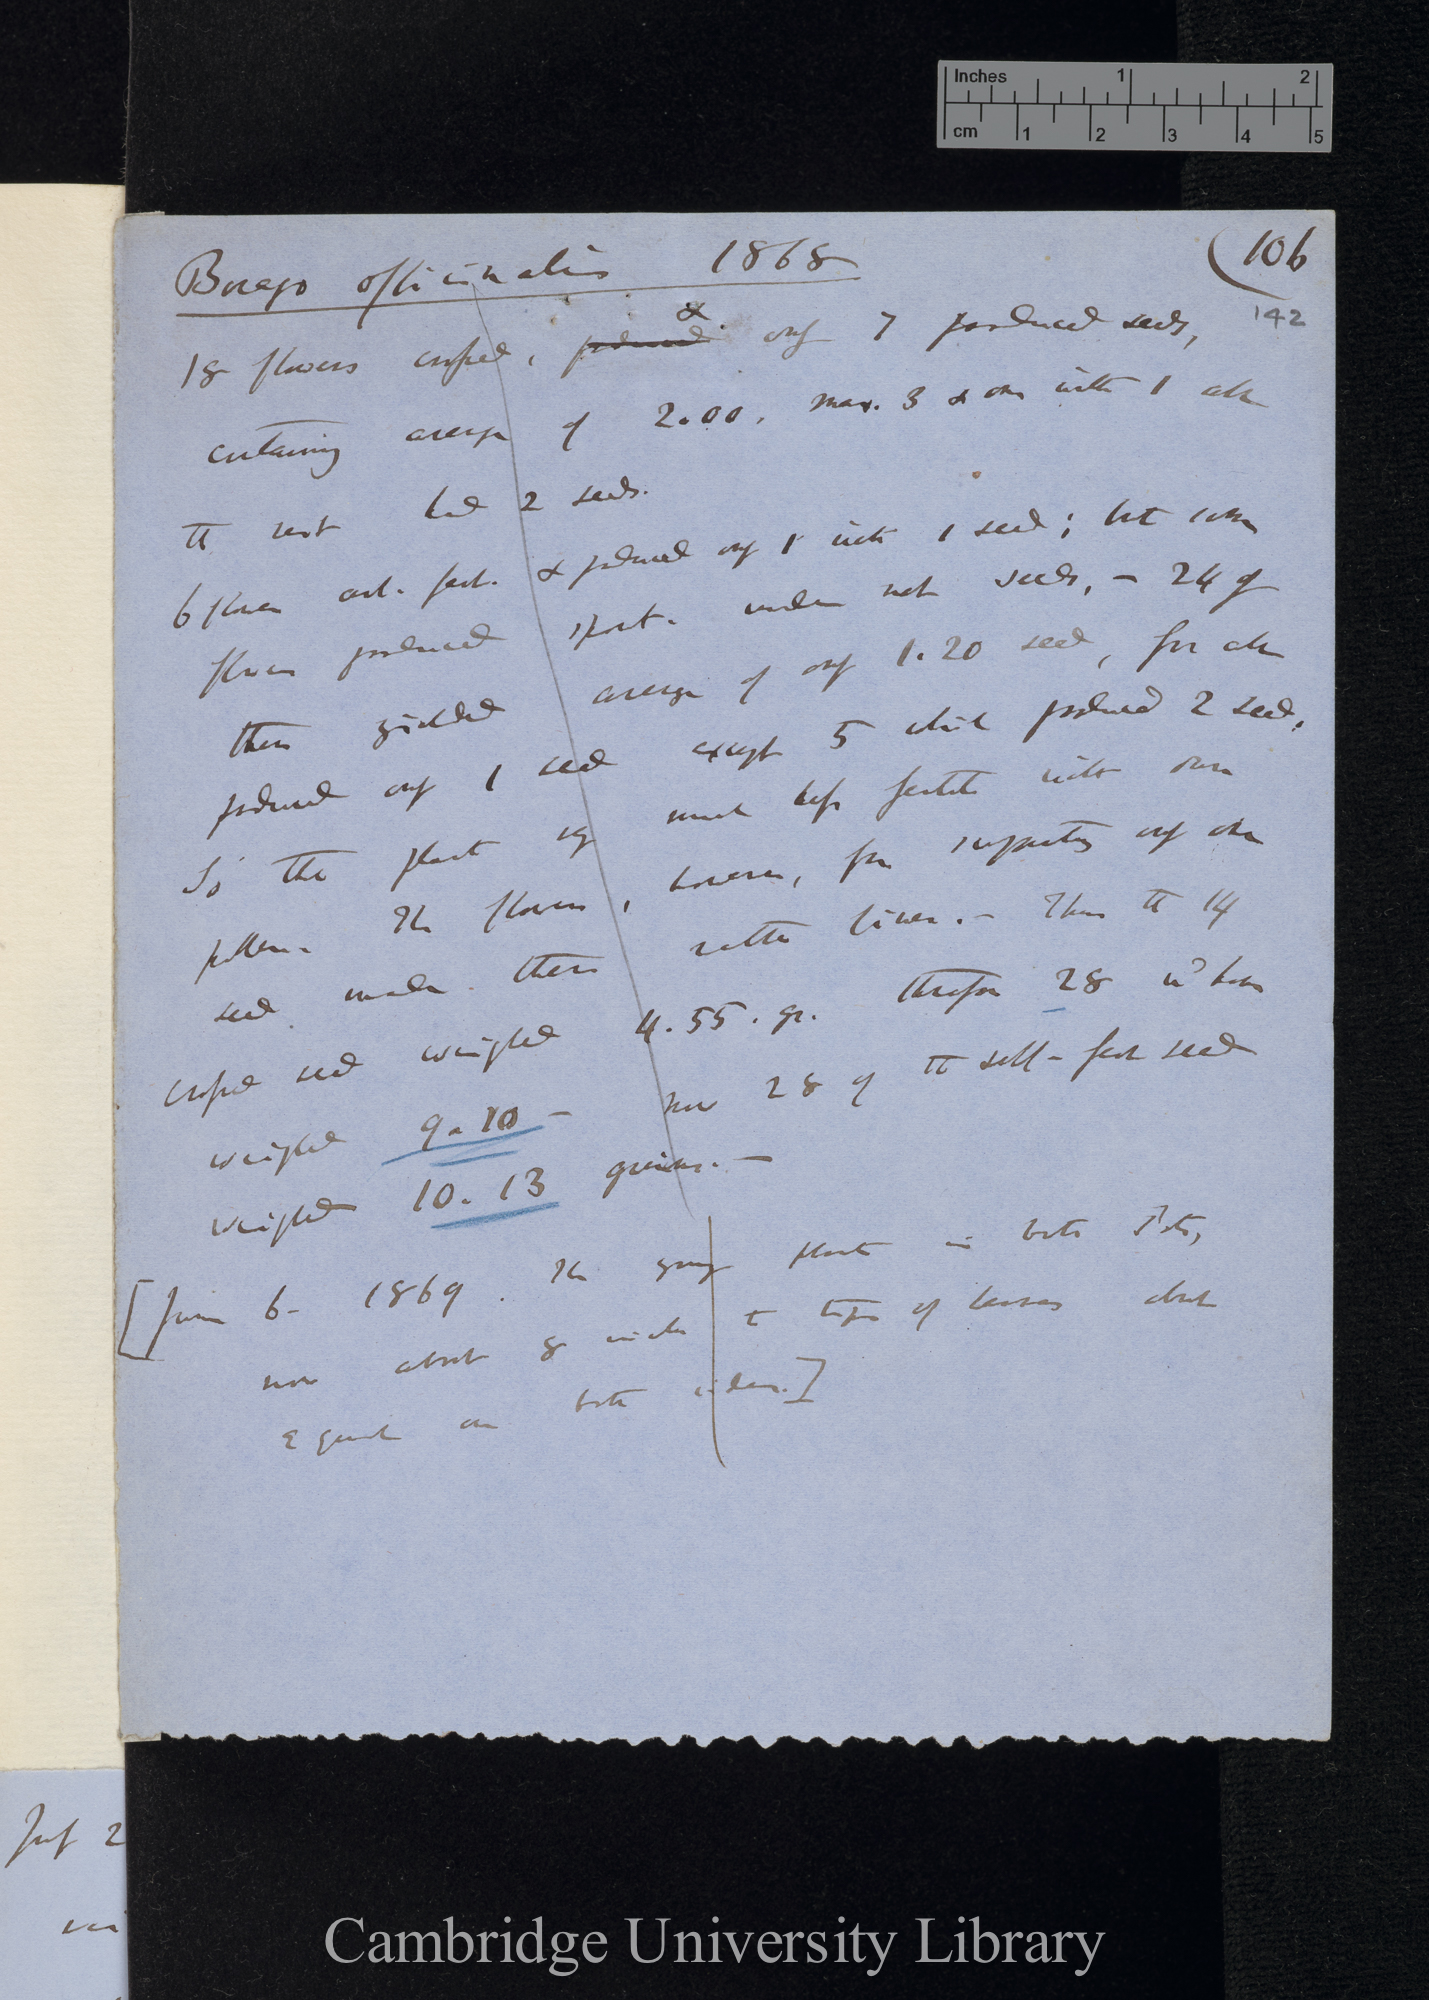 Inches 1 2
cm 1 2 3 4 5
(106
142
Borago officinalis 1868
18 flowers crossed, produced & only 7 produced seeds,
containing average of 2.00, max. 3 & one with 1 all
the rest had 2 seeds.
6 flowers art. fert. & produced only 1 with 1 seed; but some
flowers produced spont. under net seeds, – 24 of
these yielded average of only 1.20 seed, for all
produced only 1 seed except 5 which produced 2 seeds.
So this plant is much less fertile with own
pollen. The flowers, however, from supporting only one
seed made them rather finer. – Thus the 14
crossed seed weighed 4.55. gr. therefore 28 wd have
weighed 9.10 – now 28 of the self-fert seed
weighed 10.13 grains. –
[June 6 – 1869. The young plants in both Pots,
now about 8 inches to tips of leaves about
equal on both sides.]
July 2
Cambridge University Library